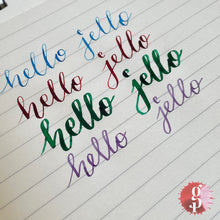 hello jello
hello jello
hello jello
hello jello
gp